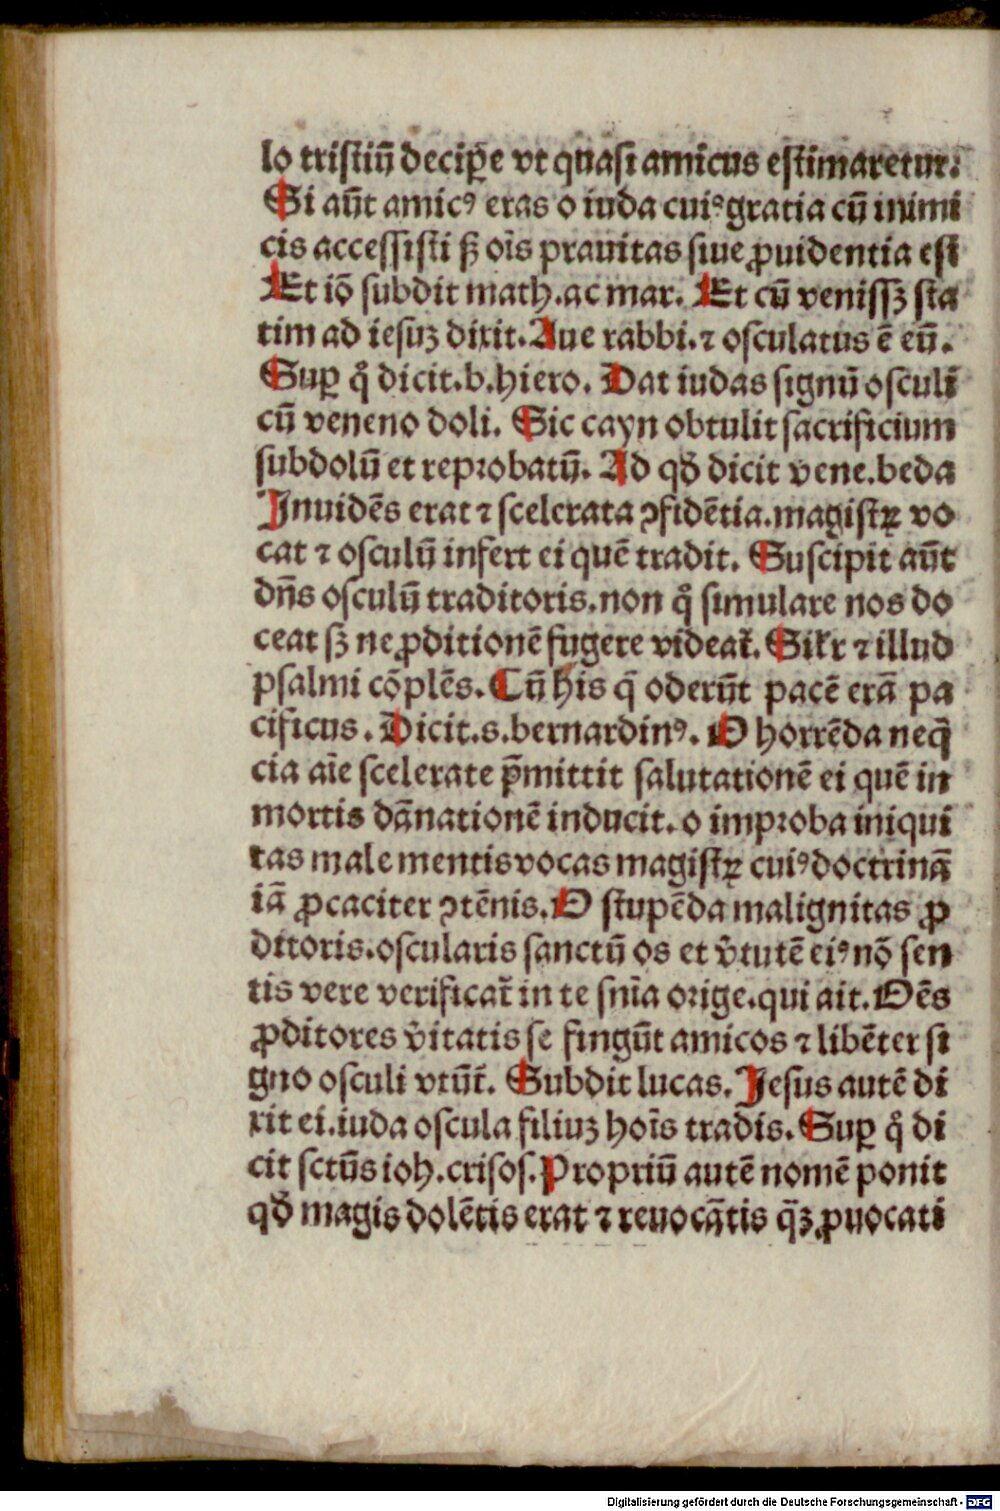 lo tristiū decipe̲ vt quasi amicus estimaretur.
Si aūt amicꝰ eras o iuda cuiꝰ gratia cū inimi
cis accessisti ſꝫ oīs prauitas siue ꝓuidentia est
Et iō subdit math. ac mar. Et cū venissꝫ sta
tim ad iesuꝫ dixit. Aue rabbi. ⁊ osculatus ē eū.
Suꝑ qͦ dicit. b. hiero. Dat iudas signū osculi
cū veneno doli. Sic cayn obtulit sacrificium
subdolū et reprobatū. Ad qđ dicit vene. beda
Inuidēs erat ⁊ scelerata ꝯfidētia. magistꝝ vo
cat ⁊ osculū infert ei quē tradit. Suscipit aūt
dn̄s osculū traditoris. non qͦ simulare nos do
ceat sꝫ ne ꝓditionē fugere videat̄. Silr ⁊ illud
psalmi cōplēs. Cū his q̄ oderūt pacē erā pa
cificus. Dicit. s. bernardinꝰ. O horrēda neq̄
cia aīe scelerate p̄mittit salutationē ei quē in
mortis dānationē inducit. o improba iniqui
tas male mentis vocas magistꝝ cuiꝰ doctrinā
iā ꝓcaciter ꝯtēnis. O stupēda malignitas ꝓ
ditoris. oscularis sanctū os et v̄tutē eiꝰ nō sen
tis vere verificat̄ in te sn̄ia orige. qui ait. Oēs
ꝓditores v̄itatis se fingūt amicos ⁊ libēter si
gno osculi vtūt̄. Subdit lucas. Jesus autē di
xit ei. iuda oscula filiuꝫ hoīs tradis. Suꝑ qͦ di
cit sctūs ioh. crisos. Propriū autē nomē ponit
qđ magis dolētis erat ⁊ reuocātis q̄ꝫ ꝓuocati
Digitalisierung gefördert durch die Deutsche Forschungsgemeinschaft - DFG